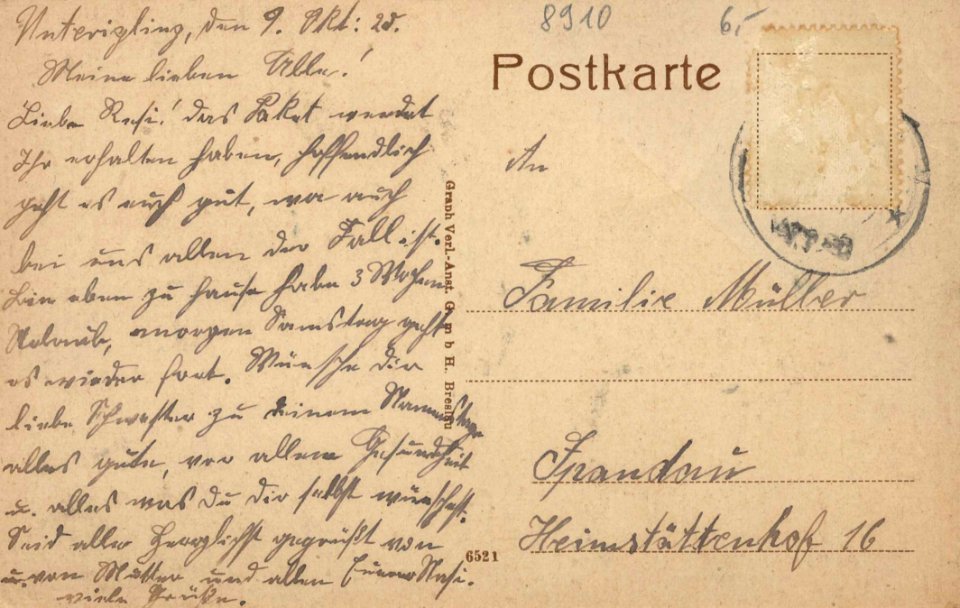 Unterigling, den 9. Okt: 25.
Meine lieben Alle!
Liebe Resi! das Paket werdet
Ihr erhalten haben, hoffendlich
geht es euch gut, wa auch
bei uns allen der Fall ist.
Bin eben zu hause habe 3 Wochen
Urlaub, morgen Samstag geht
es wieder fort. Wünsche dir
liebe Schwester zu deinem Namenstage
alles gute, vor allem Gesundheit
u. alles was Du dir selbst wünschst.
Seid alle herzlichst gegrüßt von
u. von Mutter und allen Eurer
viele Grüße.
8910
6,-
Postkarte
An
Familie Müller
Spandau
Heimstättenhof 16
Graph Verl.-Anst. G. m b H., Breslau
6521